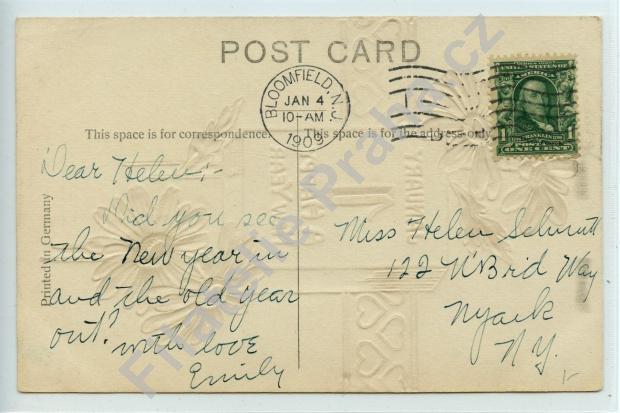 POST CARD
BLOOMFIELD, N.J.
JAN 4
10-AM
1909
SERIES 1902
UNITED STATES OF AMERICA
FRANKLIN
1 1
POSTAGE
ONE CENT
This space is for correspondence.
This space is for the address only
Printed in Germany
Dear Helen,-
Did you see
the New year in
and the old year
out?
with love
Emily
Miss Helen Schmitt
122 N Brid Way
Nyack
N.Y.
Filatelie Praha.cz